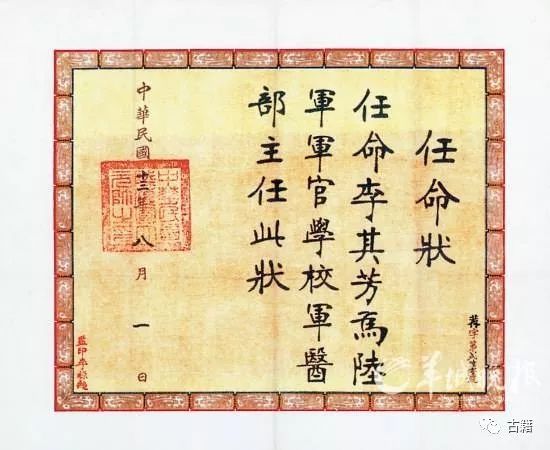 任命狀
任命李其芳為陸
軍軍官學校軍醫
部主任此狀
中華民國十三年八月一日
監印李祿超
羊城晚報
古籍